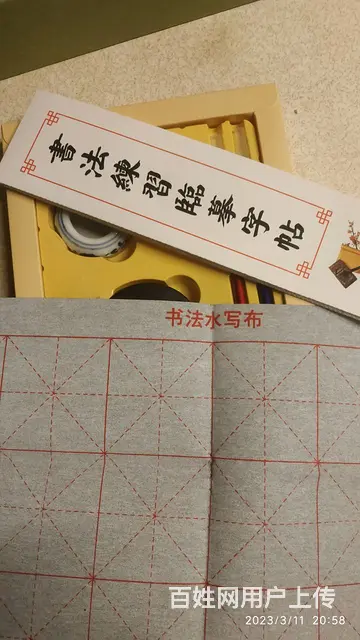 書法練習臨摹字帖
书法水写布
百姓网用户上传
2023/3/11 20:58